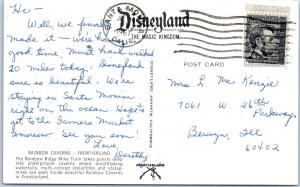 Hi -
Well, we finally
made it - we're having
good time. Must have walked
20 miles today. Disneyland
sure is beautiful. We are
staying in Santa Monica
right on the ocean. Hope to
get to the Farmers Market
tomorrow. See you soon!
Love,
RAINBOW CAVERNS - FRONTIERLAND
The Rainbow Ridge Mine Train takes guests deep
into underground caverns where breathtaking
waterfalls, multi-colored stalactites and stalag-
mites are seen inside beautiful Rainbow Caverns
in Frontierland.
SANTA MONICA
CALIF.
Disneyland
THE MAGIC KINGDOM
POST CARD
Mrs. L. Mc Kenzie
7061 W. 26th
Parkway
Berwyn, Ill
60402
FRONTIERLAND